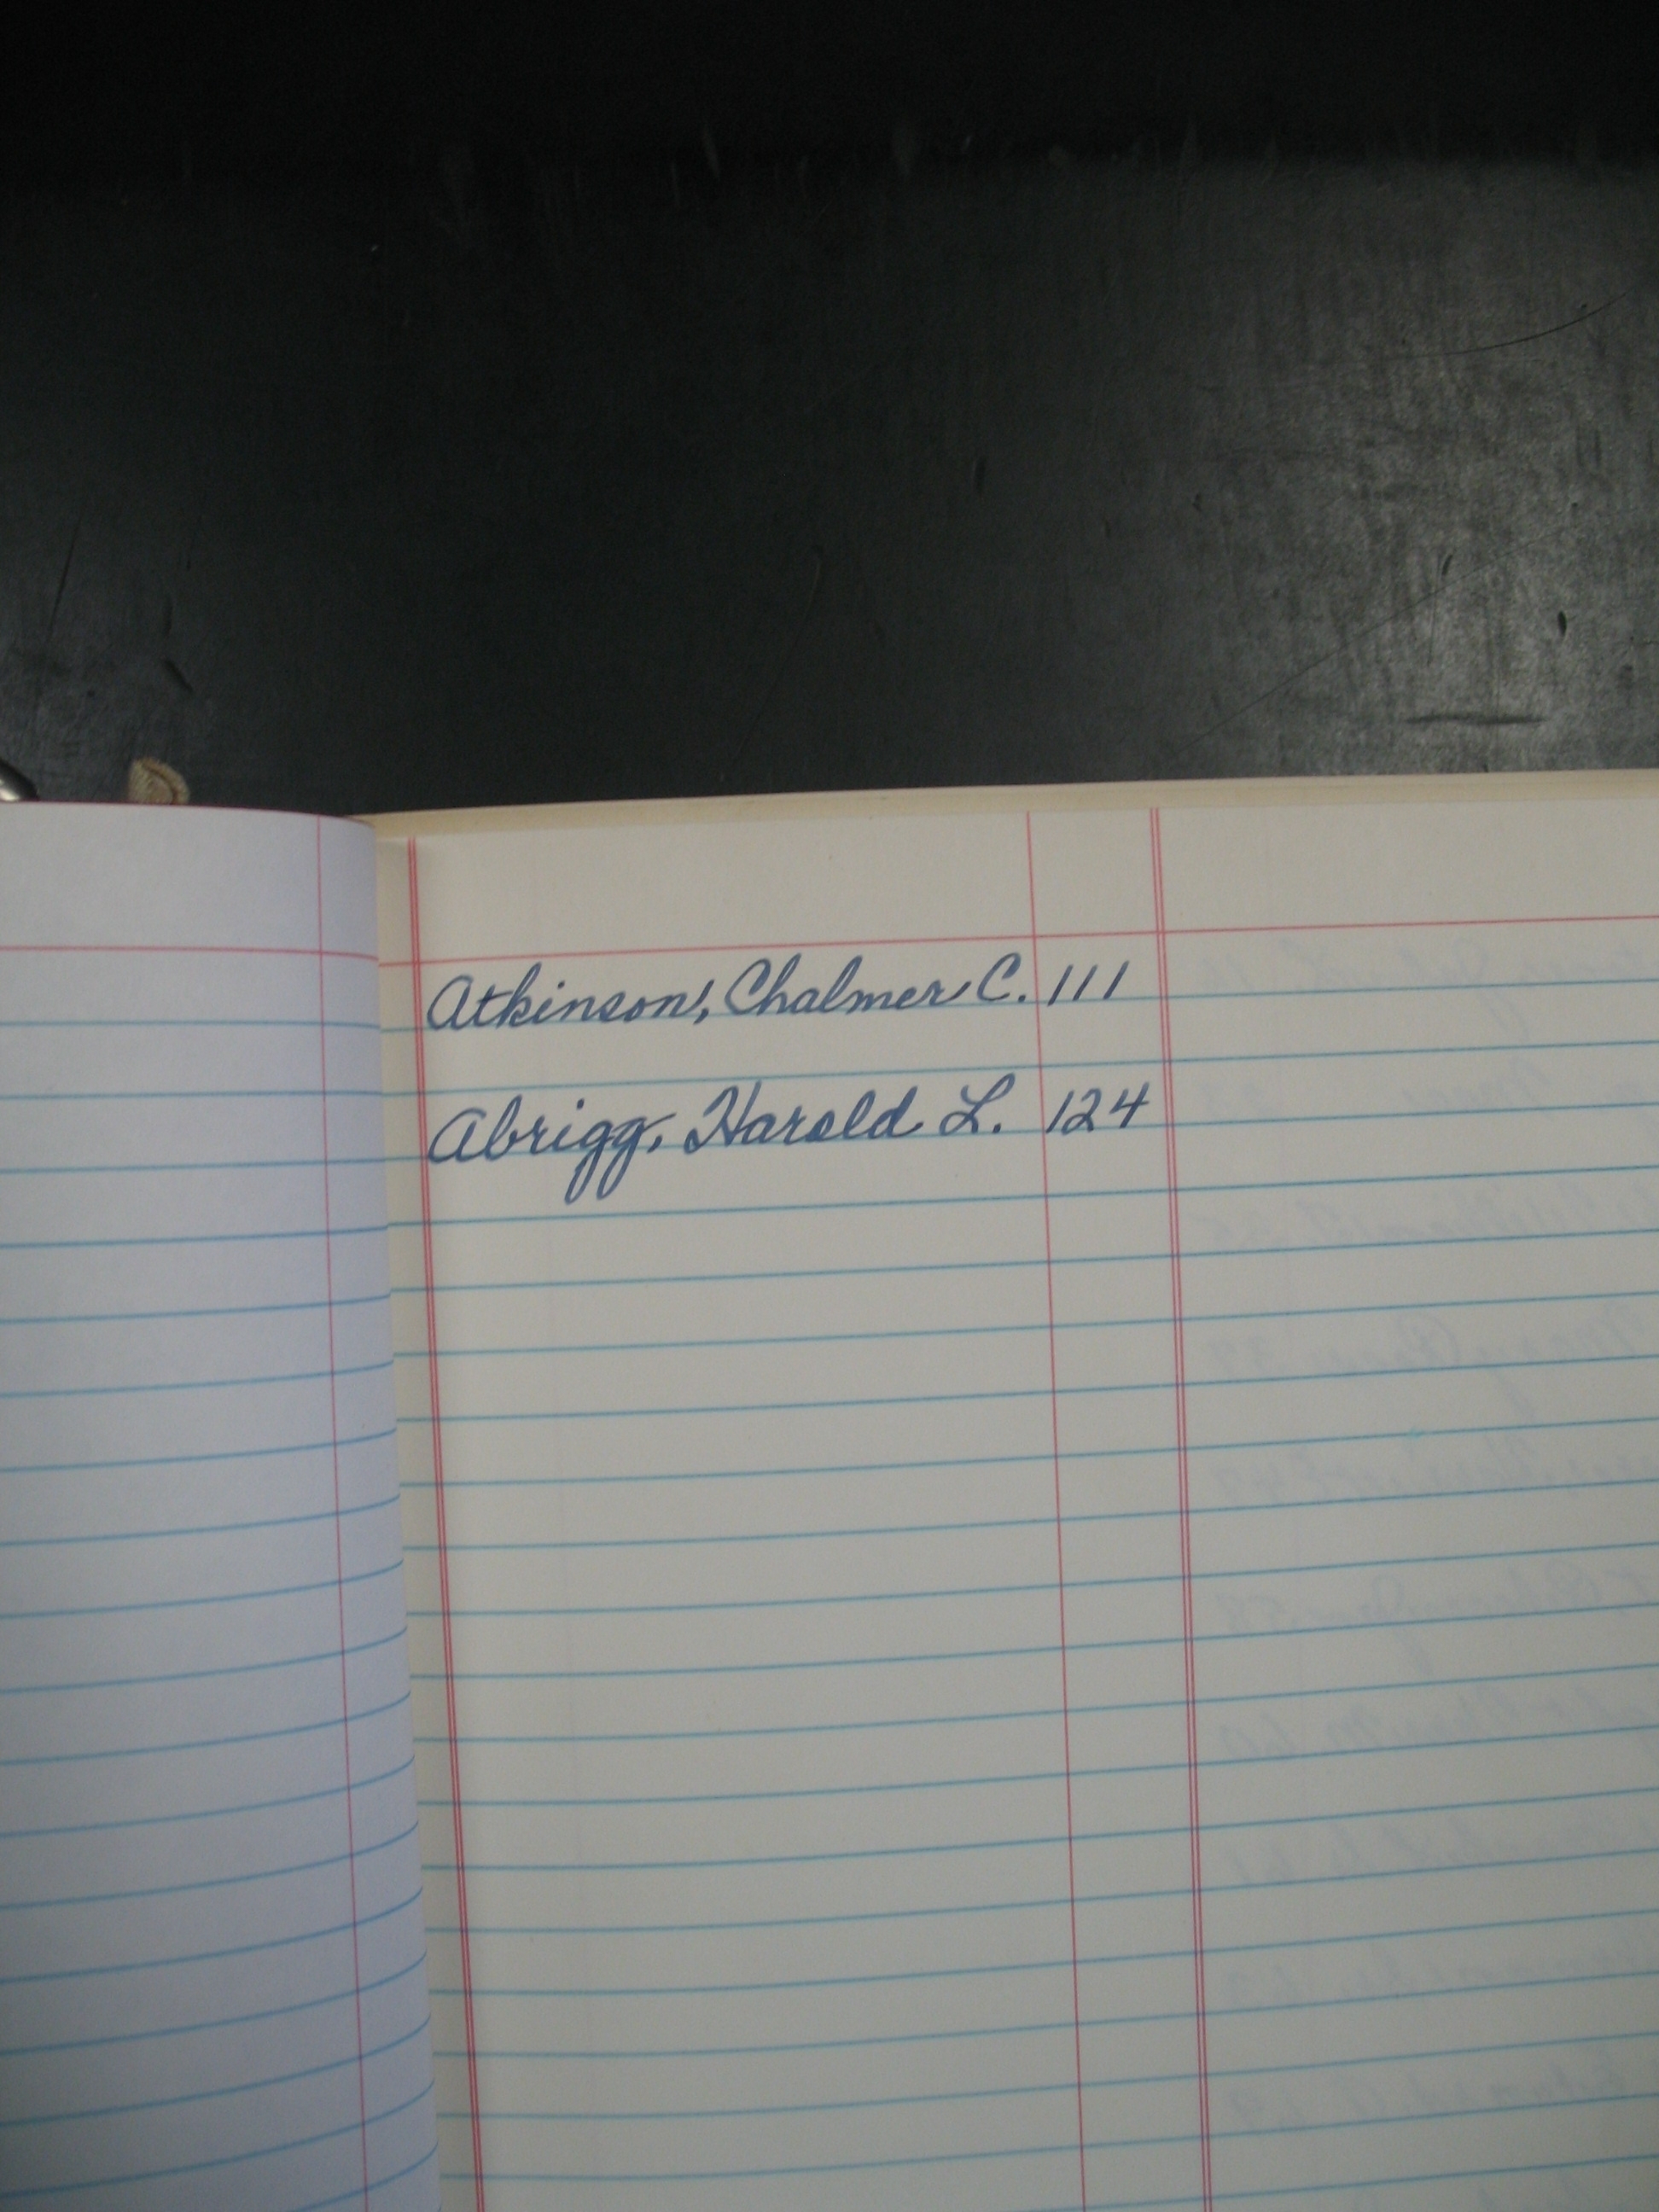 Atkinson, Chalmer C. 111
Abrigg, Harold L. 124